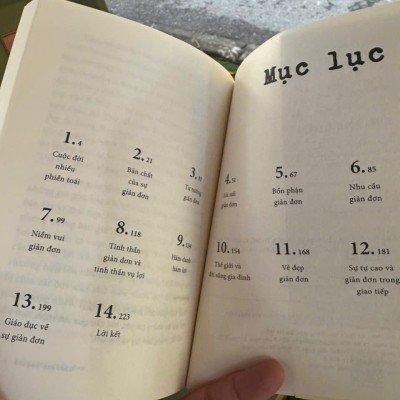 Mục lục
1.4
Cuộc đời
nhiều
phiền toái
2.21
Bản chất
của sự
giản đơn
3.
Tư tưởng
giản đơn
4.
giản đơn
5.67
Bổn phận
giản đơn
6.85
Nhu cầu
giản đơn
7.99
Niềm vui
giản đơn
8.118
Tinh thần
giản đơn và
tinh thần vụ lợi
9.
10.154
Thế giới và
gia đình
11.168
Vẻ đẹp
giản đơn
12.181
Sự tự cao và
giản đơn trong
giao tiếp
13.199
Giáo dục về
sự giản đơn
14.223
Lời kết